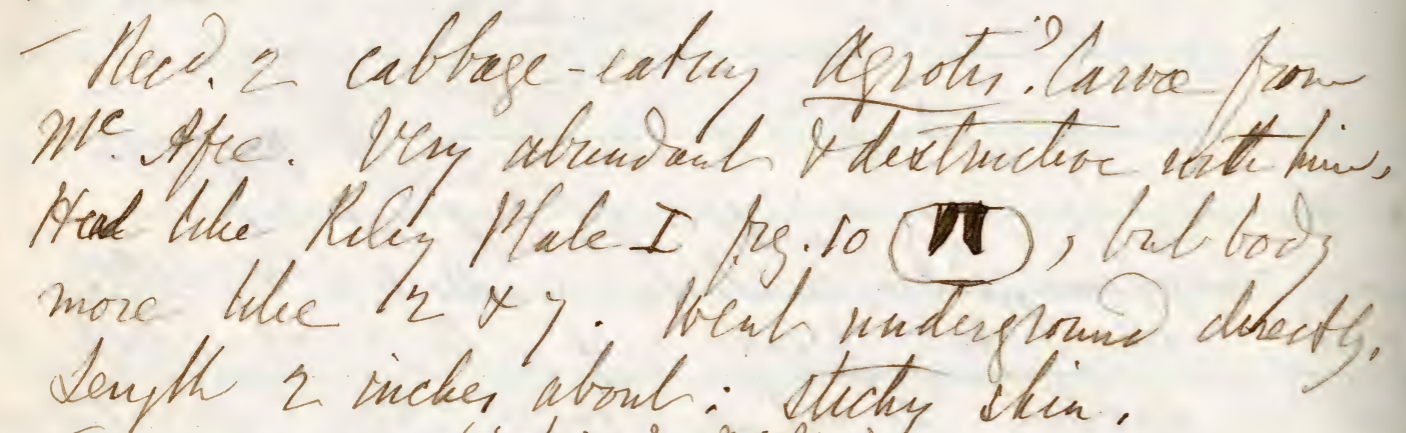 — Recd. 2 cabbage-eating Agrotis? larvæ from
Mc. Afee. Very abundant & destructive with him.
Head like Riley Plate I fig. 10 , but body
more like 2 & 7. Went underground directly.
Length 2 inches about: sticky skin.